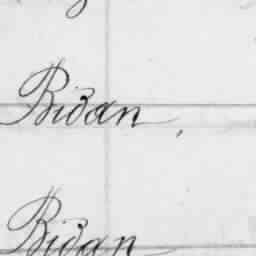 Bidan,
Bidan